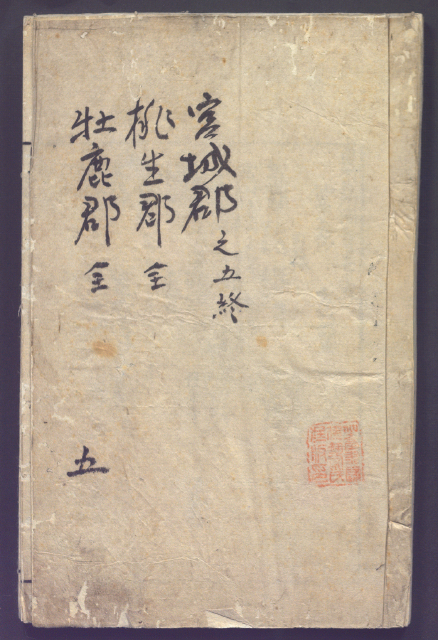 宮城郡之五終
桃生郡全
牡鹿郡全
五